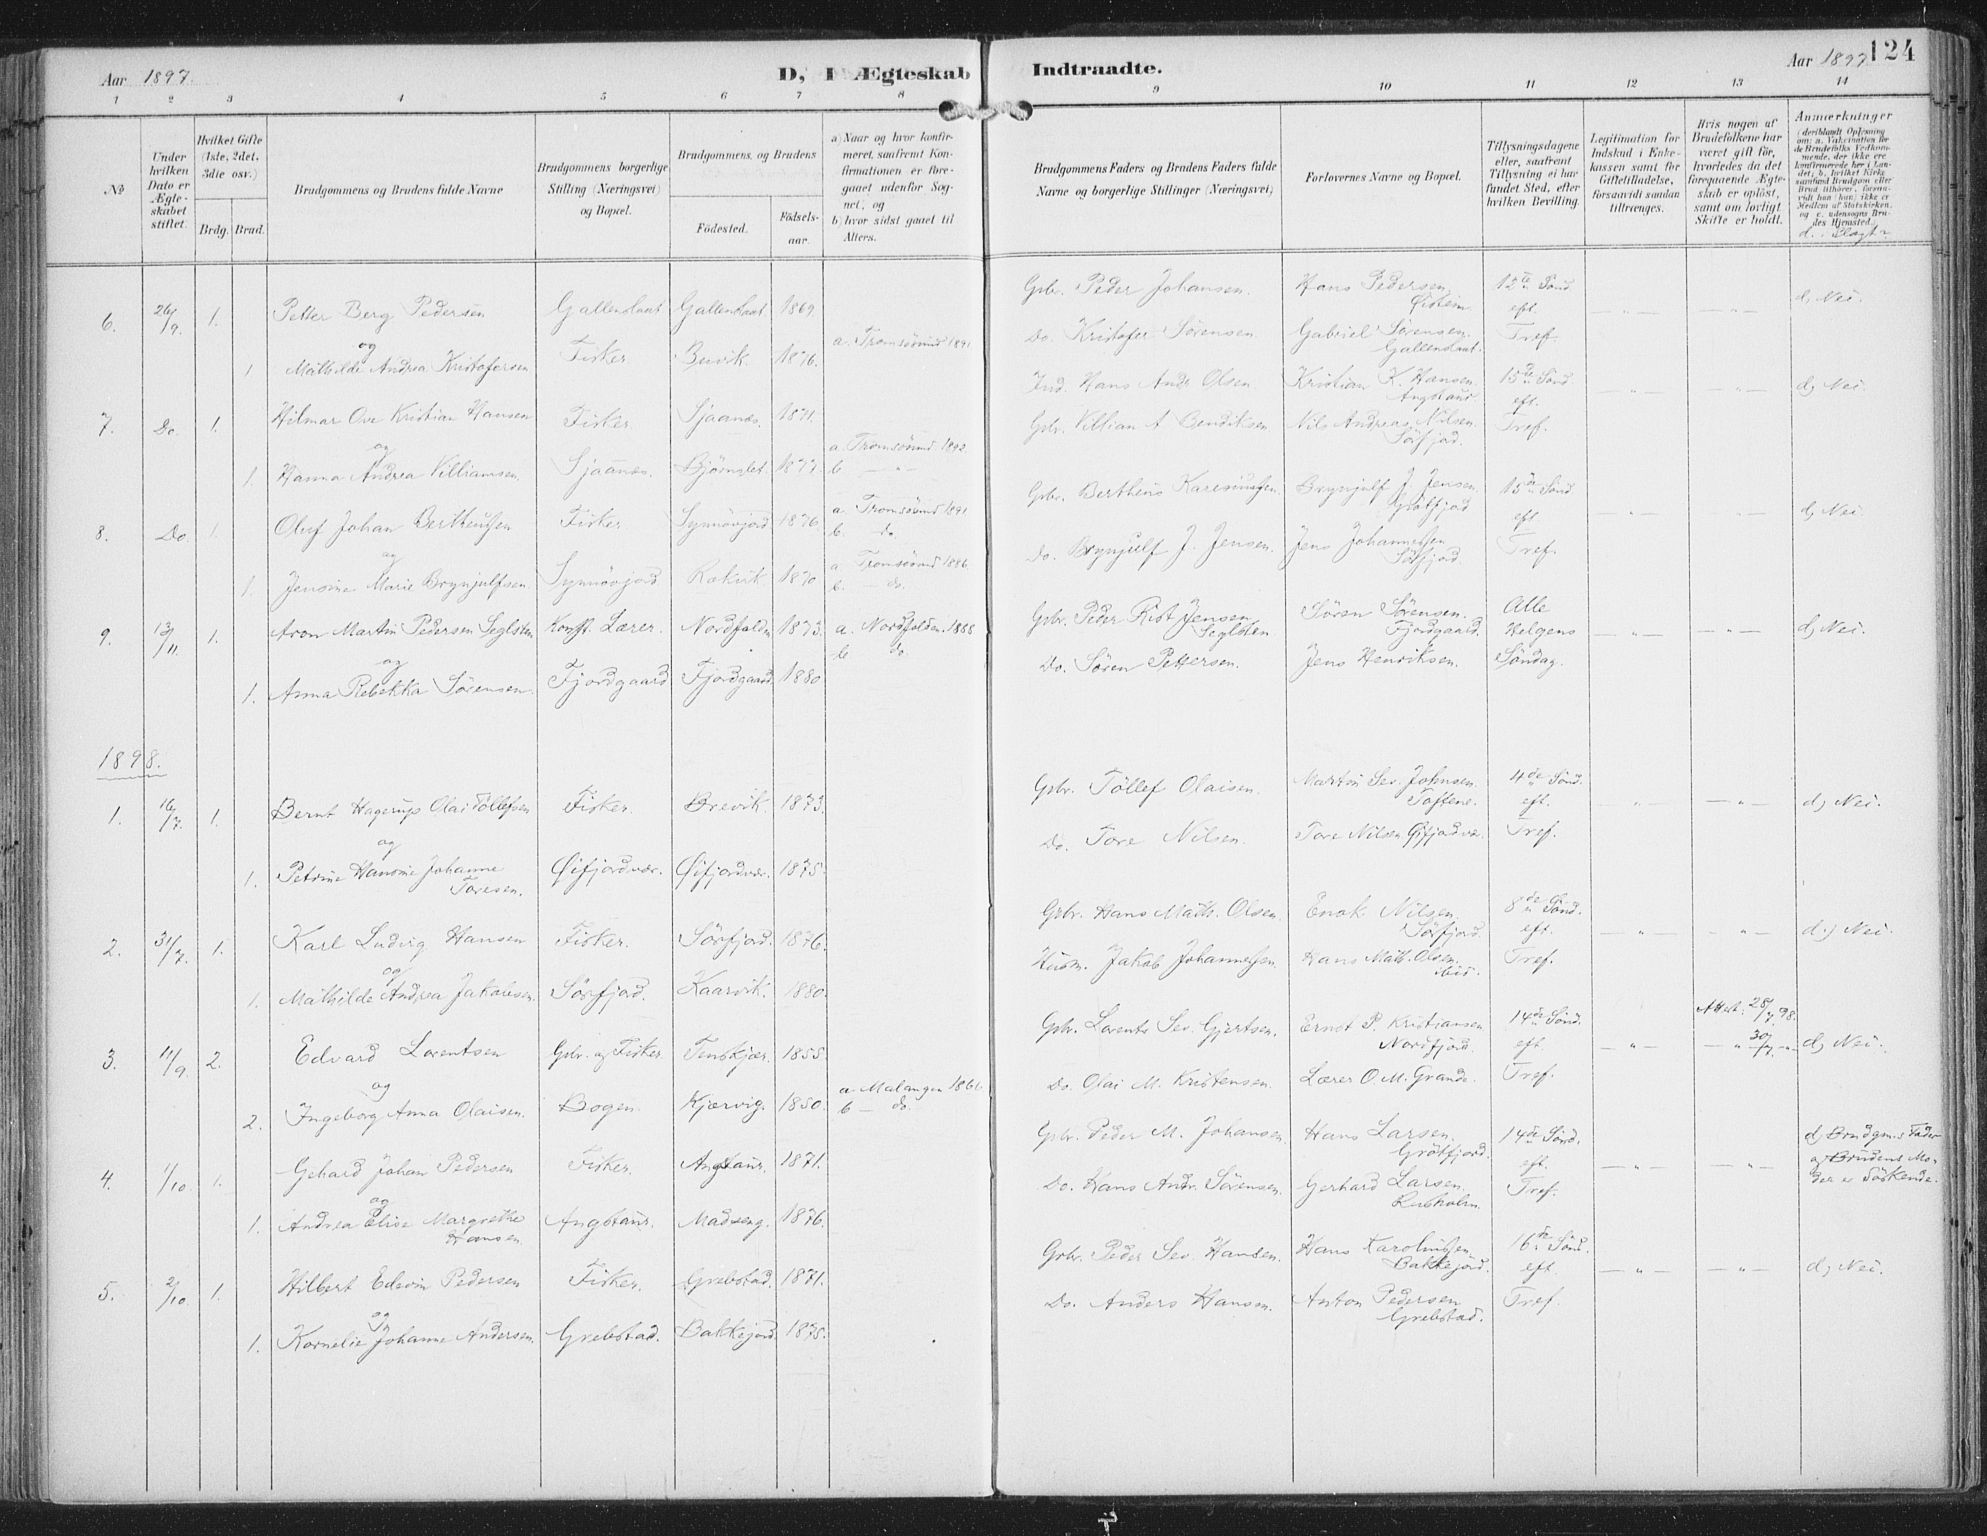 Aar 1897.
D, I Ægteskab Indtraadte.
Aar 1897. 124
1 2 3 4 5 6 7 8 9 10 11 12 13 14
No
Under hvilken Dato er Ægteskabet stiftet.
Hvilket Gifte (1ste, 2det, 3die osv.)
Brdg. Brud.
Brudgommens og Brudens fulde Navne
Brudgommens borgerlige Stilling (Næringsvei) og Bopæl.
Brudgommens og Brudens
Fødested. Fødselsaar.
a) Naar og hvor konfirmeret, saafremt Konfirmationen er foregaaet udenfor Sognet; og b) hvor sidst gaaet til Alters.
Brudgommens Faders og Brudens Faders fulde Navne og borgerlige Stillinger (Næringsvei)
Forlovernes Navne og Bopæl.
Tillysningsdagene eller, saafremt Tillysning ei har fundet Sted, efter hvilken Bevilling.
Legitimation for Indskud i Enkekassen samt for Giftetilladelse, forsaavidt saadan tiltrænges.
Hvis nogen af Brudefolkene har været gift før, hvorledes da det foregaaende Ægteskab er opløst, samt om lovligt Skifte er holdt.
Anmærkninger (deriblandt Oplysning om: a. Vakcination for de Brudefolks Vedkommende, der ikke ere konfirmerede her i Landet; b. hvilket Kirkesamfund Brudgom eller Brud tilhører, forsaavidt han (hun) ikke er Medlem af Statskirken, og c. udensogns Brudes Hjemsted.
d. i Slægt?
6. 26/9. 1. Petter Berg Pedersen Gallenslaat Gallenslaat 1869. Gbr. Peder Johansen. Hans Pedersen, 12te Sønd. eft. — „ — — „ — d, Nei.
og
1 Mathilde Andrea Kristofersen Fisker Buvik. 1876. a. Tromsøsund 1891 Do. Kristofer Sørensen Gabriel Sørensen. Gallenslaat. Tref.
7. Do. 1. Hilmar Ove Kristian Hansen Fisker Sjaanæs. 1871. Ind. Hans Andr. Olsen Kristian K. Hansen. Angstaur. 15de Sønd. eft. — „ — — „ — d, Nei.
og
1. Hanna Andrea Villiamsen. Sjaanæs. 1877. a. Tromsøsund 1892 b — „ — Gbr. Villian A. Bendiksen Nils Andreas Nilsen. Sørfjord. Tref.
8. Do. 1. Oluf Johan Bertheussen Fisker. 1876. a. Tromsøsund 1891 b. do. Gbr. Bertheus Brynjulf J. Jensen Grøtfjord 15de Sønd. eft. — „ — — „ — d, Nei.
og
1. Jensine Marie Brynjulfsen 1870 a. Tromsøsund 1886. b. — do. Do. Brynjulf J. Jensen. Jens Johannessen Sørfjord. Tref.
9. 13/11. 1. Aron Martin Pedersen Seglsten Konst. Lærer. Nordfolden 1873. a. Nordfolden 1888 b do. Gbr. Peder Rist Jensen Seglsten. Søren Sørensen. Fjordgaard. Alle Helgens Søndag. — „ — — „ — d, Nei.
og
1. Anna Rebekka Sørensen. Fjordgaard Fjordgaard. 1880 Do. Søren Pettersen. Jens Henriksen.
1898.
1. 16/7. 1. Bernt Hagerup Olai Tøllefsen Fisker. Brevik. 1873. Gbr. Tøllef Olaisen. Martin Sev. Johnsen Toftene. 4de Sønd. eft. — „ — — „ — d, Nei.
og
1. Petrine Hansine Johanne Toresen. Øifjordvær. Øifjordvær. 1875. Do. Tore Nilsen. Tore Nilsen Øifjordvær. Tref.
2. 31/7. 1. Karl Ludvig Hansen Fisker. Sørfjord. 1876. Gbr. Hans Math. Olsen. Enok Nilsen. Sørfjord. 8de Sønd. eft. — „ — - „ — d.) Nei.
og
1. Mathilde Andrea Jakobsen. Sørfjord. Kaarvik. 1880. Husm. Jakob Johannessen. Hans Math. Olsen. ibid. Tref.
3. 11/9. 2. Edvard Lorentsen Gbr. og Fisker Tenskjær. 1855. Gbr. Lorents Sev. Gjertsen. Ernst P. Kristiansen Nordfjord. 14de Sønd. eft. — „ — Attest. 28/7 98. — „ 30/7 - „ - d, Nei.
og
2. Ingeborg Anna Olaisen. Bogen Kjærvig. 1850. a. Malangen 1866. b — do. Do. Olai M. Kristensen. Lærer O. M. Grande. Tref.
4. 1/10. 1. Gehard Johan Pedersen Fisker. Angstaur. 1871. Gbr. Peder M. Johansen Hans Larsen. Grøtfjord. 14de Sønd. eft. — „ — — „ — d, Brudgm.s Fader og Brudens Moder er Søskende.
og
1. Andrea Elise Margrethe Hansen. Angstaur. Madseng. 1876. Do. Hans Andr. Sørensen. Gerhard Larsen. Risholm. Tref.
5. 2/10. 1. Hilbert Edvin Pedersen Fisker. Grebstad. 1871. Gbr. Peder Sev. Hansen. Hans Karolinssen Bakkejord. 16de Sønd. eft. — „ — — „ — d, Nei.
og
1. Kornelie Johanne Andersen. Grebstad. Bakkejord. 1875. Do. Anders Hansen. Anton Pedersen Grebstad. Tref.